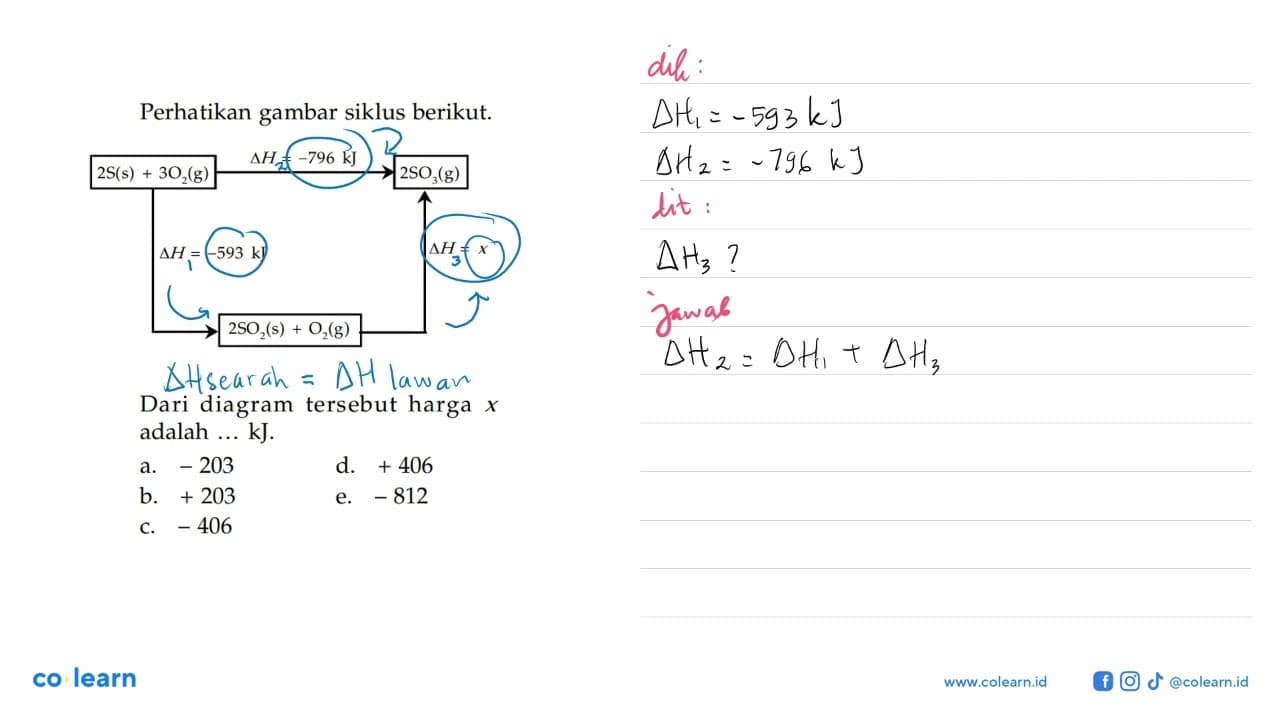 Perhatikan gambar siklus berikut.
ΔH₂ = –796 kJ
2S(s) + 3O₂(g)
2SO₃(g)
ΔH₁ = –593 kJ
ΔH₃ = x
2SO₂(s) + O₂(g)
ΔH searah = ΔH lawan
Dari diagram tersebut harga x
adalah ... kJ.
a. – 203
b. + 203
c. – 406
d. + 406
e. – 812
dik :
ΔH₁ = - 593 kJ
ΔH₂ = - 796 kJ
dit :
ΔH₃ ?
jawab
ΔH₂ = ΔH₁ + ΔH₃
co learn
www.colearn.id
@colearn.id